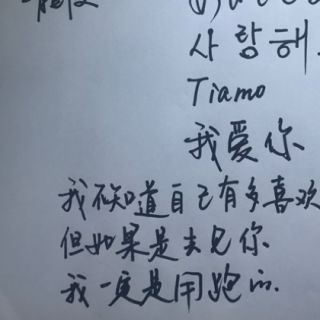 사랑해.
Tiamo
我爱你
我不知道自己有多喜欢
但如果是去见你
我一定是用跑的.